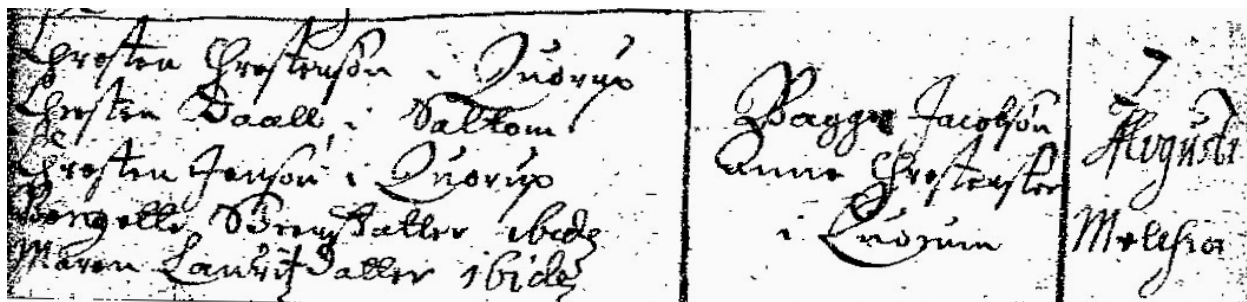 Chresten Chrestensøn i Quorup
Chresten Daall, i Saltom
Chresten Jensøn i Quorup
Bengelle Svensdatter ibide
Maren Lauritzdatter ibide
Bagge Jacobsøn
Anne Chrestens
i Quorum
7
Augusti